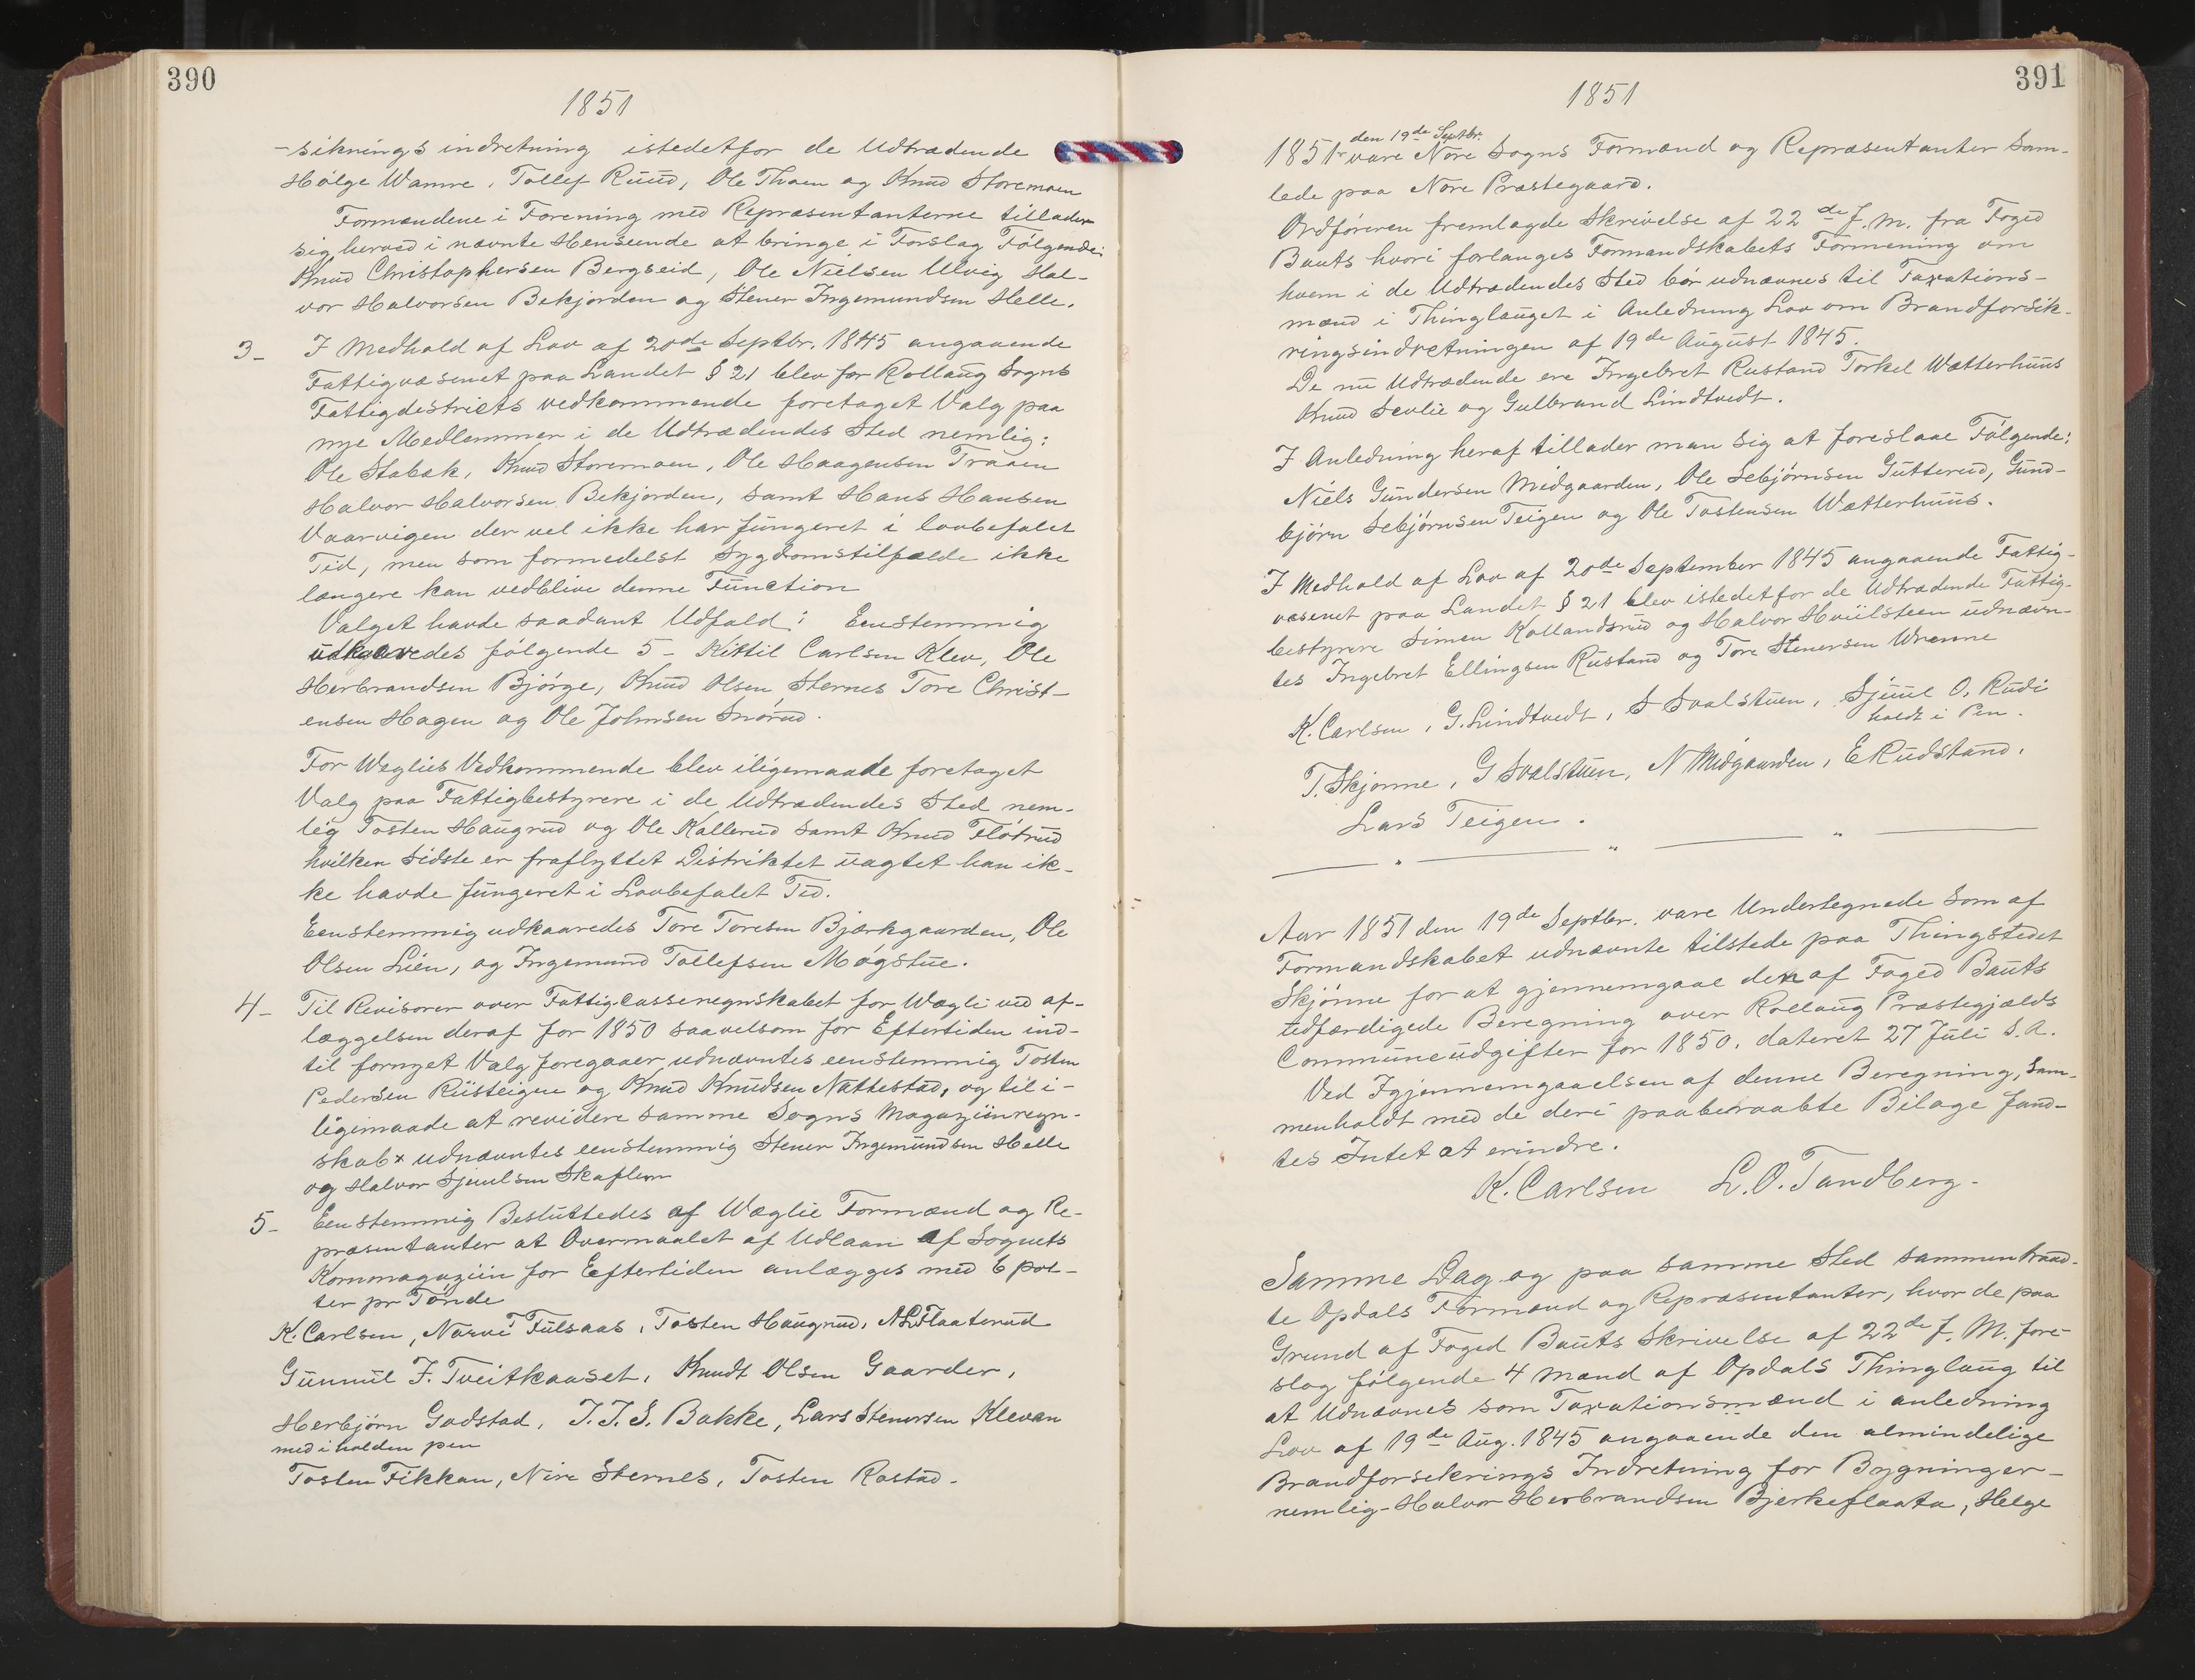 390
1851
-sikrings indretning istedetfor de Udtrædende
Hølge Wamre, Tollef Ruud, Ole Thoen og Knud Storemoen
Formændene i Forening med Repræsentanterne tillader
sig herved i nævnte Henseende at bringe i Forslag Følgende:
Knud Christophersen Bergseid, Ole Nielsen Ulvig Hal-
vor Halvorsen Bekjorden og Stener Ingemundsen Helle.
3- I Medhold af Lov af 20de Septbr. 1845 angaaende
Fattigvæsenet paa Landet § 21 blev for Rollaug Sogns
Fattigdestricts vedkommende foretaget Valg paa
nye Medlemmer i de Udtrædendes Sted nemlig:
Ole Stabæk, Knud Storemoen, Ole Haagensen Traaen
Halvor Halvorsen Bekjorden, samt Hans Hansen
Vaarvigen der vel ikke har fungeret i lovbefalet
Tid, men som formedelst Sygdomstilfælde ikke
længere kan vedblive denne Function
Valget havde saadant Udfald: Eenstemmig
udkaaredes følgende 5- Kittil Carlsen Klev, Ole
Herbrandsen Bjørge, Knud Olsen Sternes Tore Christ-
ensen Hagen og Ole Johnsen Snørud.
For Weglies Vedkommende blev iligemaade foretaget
Valg paa Fattigbestyrere i de Udtrædendes Sted nem-
lig Tosten Haugrud og Ole Kallerud samt Knud Fløtrud
hvilken sidste er fraflyttet Distriktet uagtet han ik-
ke havde fungeret i Lovbefalet Tid.
Eenstemmig udkaaredes Tore Toresen Bjærkgaarden, Ole
Olsen Lien, og Ingemund Tollefsen Møgstue.
4- Til Revisorer over Fattigcasseregnskabet for Wægli ved af-
læggelsen deraf for 1850 saavelsom for Eftertiden ind-
til fornyet Valg foregaaer udnævntes eenstemmig Tosten
Pedersen Rusteigen og Knud Knudsen Nattestad, og til i-
ligemaade at revidere samme Sogns Magaziinregn-
skab x udnævntes eenstemmig Stener Ingemundsen Helle
og Halvor Sjeulsen Skaflem
5- Eenstemmig Besluttedes af Wæglie Formænd og Re-
præsentanter at Overmaalet af Udlaan af Sognets
Kornmagaziin for Eftertiden anlægges med 6 pot-
ter pr Tønde
K. Carlsen, Narve T Fulsaas, Tosten Haugrud, N L Flaaterud
Gunnul F. Tveitkaaset, Knudt Olsen Gaarder,
Herbjörn Godstad, T. T. S. Bakke, Lars Stenersen Klevan
med iholden pen
Tosten Fikkan, Nire Sternes, Tosten Rostad-
391
1851
den 19de Septbr.
1851 vare Nore Sogns Formænd og Repræsentanter Sam-
lede paa Nore Præstegaard.
Ordføreren fremlagde Skrivelse af 22de f. M. fra Foged
Bauts hvori forlanges Formandskabets Formening om
hvem i de Udtrædendes Sted bør udnævnes til Taxations-
mænd i Thinglauget i Anledning Lov om Brandforsik-
ringsindretningen af 19de August 1845.
De nu Udtrædende ere Ingebret Rustand Torkel Wætterhuus
Knud Sevlie og Gulbrand Lindtvedt.
I Anledning heraf tillader man sig at foreslaae Følgende:
Niels Gundersen Midgaarden, Ole Sebjørnsen Gutterud, Gund-
bjørn Sebjørnsen Teigen og Ole Tostensen Wætterhuus.
I Medhold af Lov af 20de September 1845 angaaende Fattig-
væsenet paa Landet § 21 blev istedetfor de Udtrædende Fattig-
bestyrere Simen Kollandsrud og Halvor Hviilsteen udnævn-
tes Ingebret Ellingsen Rustand og Tore Stenersen Wrenne
K. Carlsen, G. Lindtvedt, S Svalstuen, Sjuul O. Rudi
holdt i Pen.
T. Skjønne, G Svalstuen, N Midgaarden, E Rudstand,
Lars Teigen.
Aar 1851 den 19de Septbr. vare Undertegnede som af
Formandskabet udnævnte tilstede paa Thingstedet
Skjønne for at gjennemgaae den af Foged Bauts
udfærdigede Beregning over Rollaug Præstegjælds
Communeudgifter for 1850, dateret 27 Juli S. A.
Ved Igjennemgaaelsen af denne Beregning, Sam-
menholdt med de deri paaberaabte Bilage fand-
tes Intet at erindre.
K. Carlsen L. O. Tandberg-
Samme Dag og paa samme Sted sammentraad-
te Opdals Formænd og Repræsentanter, hvor de paa
Grund af Foged Bauts Skrivelse af 22de f. M. fore-
slog følgende 4 Mænd af Opdals Thinglaug til
at Udnævnes som Taxationsmænd i anledning
Lov af 19de Aug. 1845 angaaende den almindelige
Brandforsekrings Indretning for Bygninger-
nemlig- Halvor Herbrandsen Bjerkeflaata, Helge